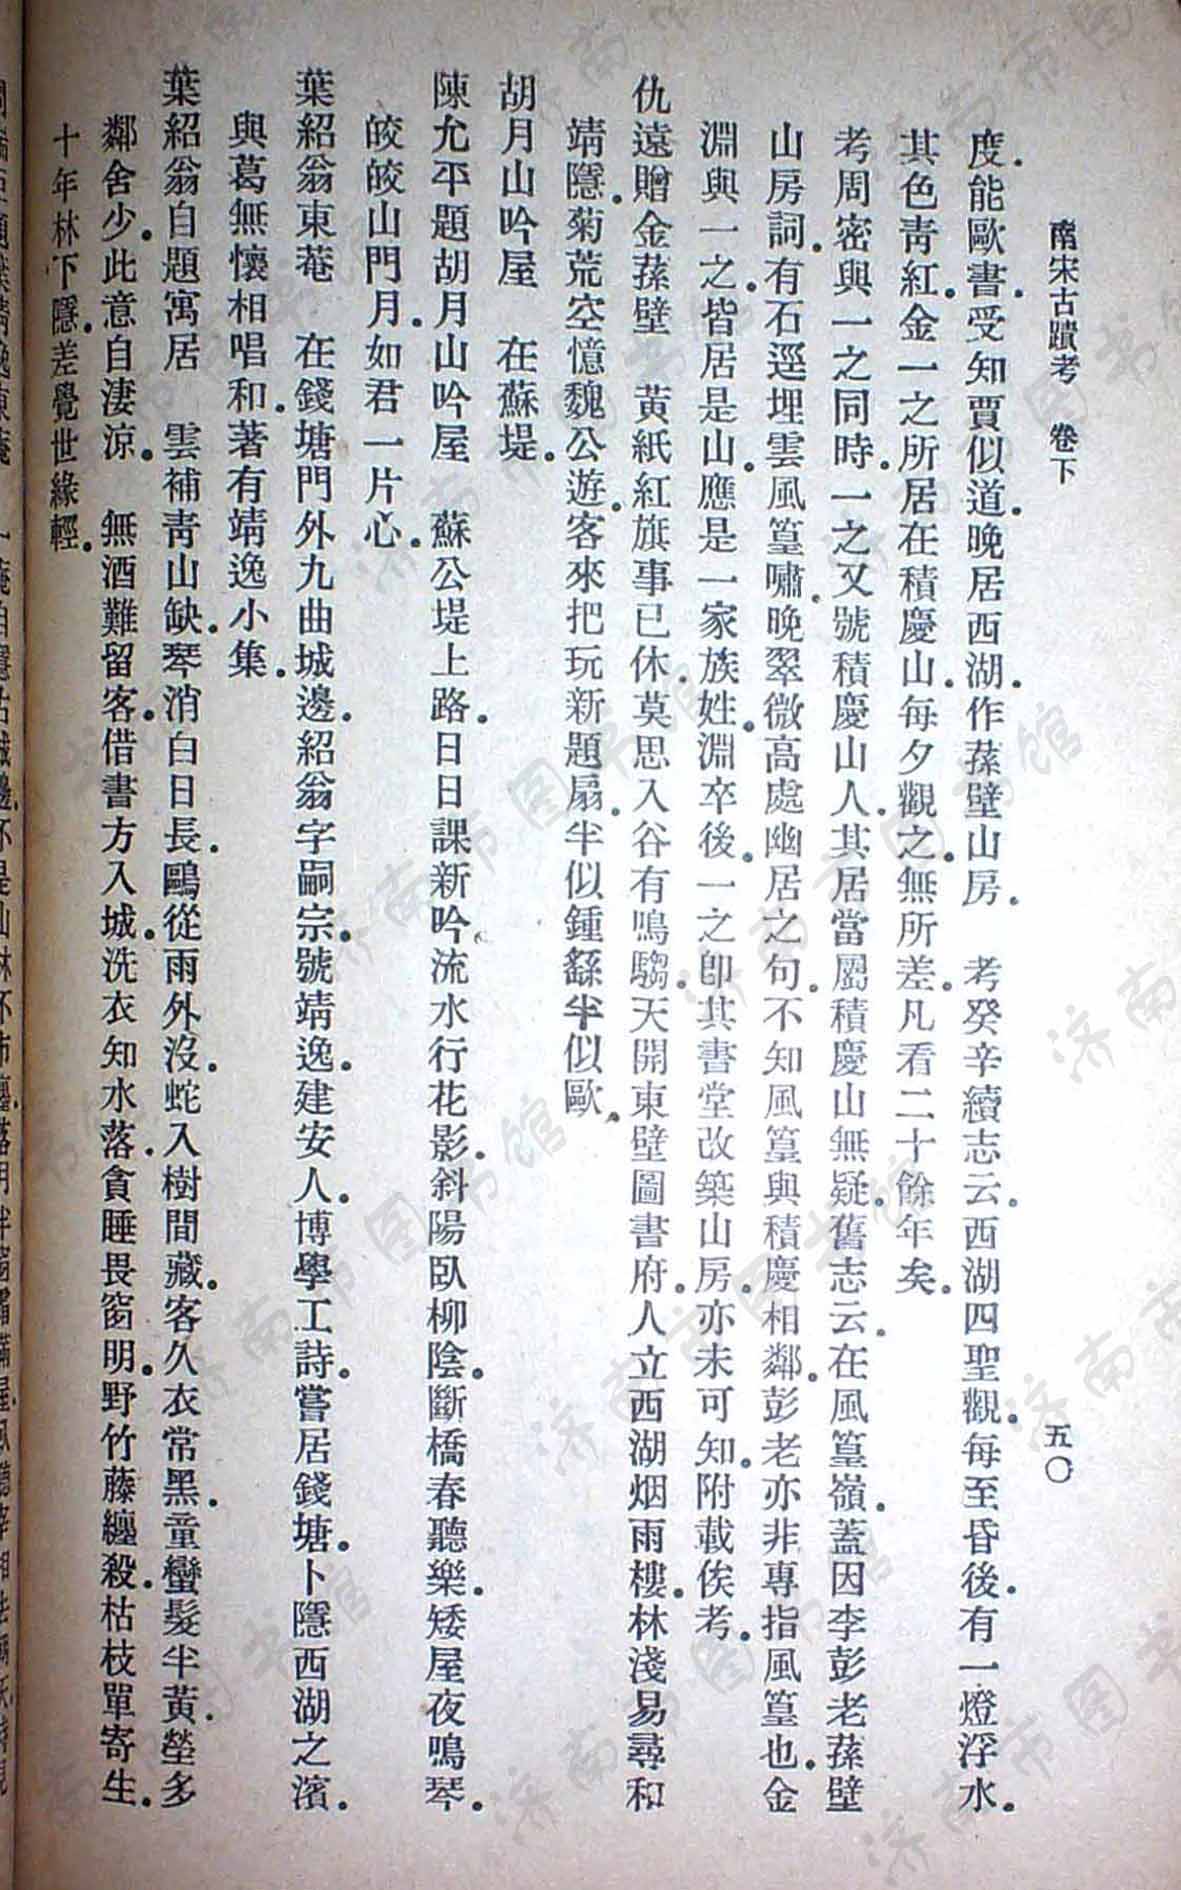 南宋古蹟考　卷下　五〇
度。能歐書。受知賈似道。晚居西湖。作蓀壁山房。　考癸辛續志云。西湖四聖觀。每至昏後。有一燈浮水。
其色靑紅。金一之所居在積慶山。每夕觀之。無所差。凡看二十餘年矣。
考周密與一之同時。一之又號積慶山人。其居當屬積慶山無疑。舊志云。在風篁嶺。蓋因李彭老蓀壁
山房詞。有石逕埋雲風篁嘯。晚翠微高處幽居之句。不知風篁與積慶相鄰。彭老亦非專指風篁也。金
淵與一之。皆居是山。應是一家族姓。淵卒後。一之卽其書堂改築山房。亦未可知。附載俟考。
仇遠贈金蓀壁　黃紙紅旗事已休。莫思入谷有鳴騶。天開東壁圖書府。人立西湖烟雨樓。林淺易尋和
靖隱。菊荒空憶魏公遊。客來把玩新題扇。半似鍾繇半似歐。
胡月山吟屋　在蘇堤。
陳允平題胡月山吟屋　蘇公堤上路。日日課新吟。流水行花影。斜陽臥柳陰。斷橋春聽樂。矮屋夜鳴琴。
皎皎山門月。如君一片心。
葉紹翁東菴　在錢塘門外九曲城邊。紹翁字嗣宗。號靖逸。建安人。博學工詩。嘗居錢塘。卜隱西湖之濱。
與葛無懷相唱和。著有靖逸小集。
葉紹翁自題寓居　雲補靑山缺。琴消白日長。鷗從雨外沒。蛇入樹間藏。客久衣常黑。童蠻髮半黃。塋多
鄰舍少。此意自淒涼。　無酒難留客。借書方入城。洗衣知水落。貪睡畏窗明。野竹藤纏殺。枯枝單寄生。
十年林下隱。差覺世緣輕。
济南市图书馆